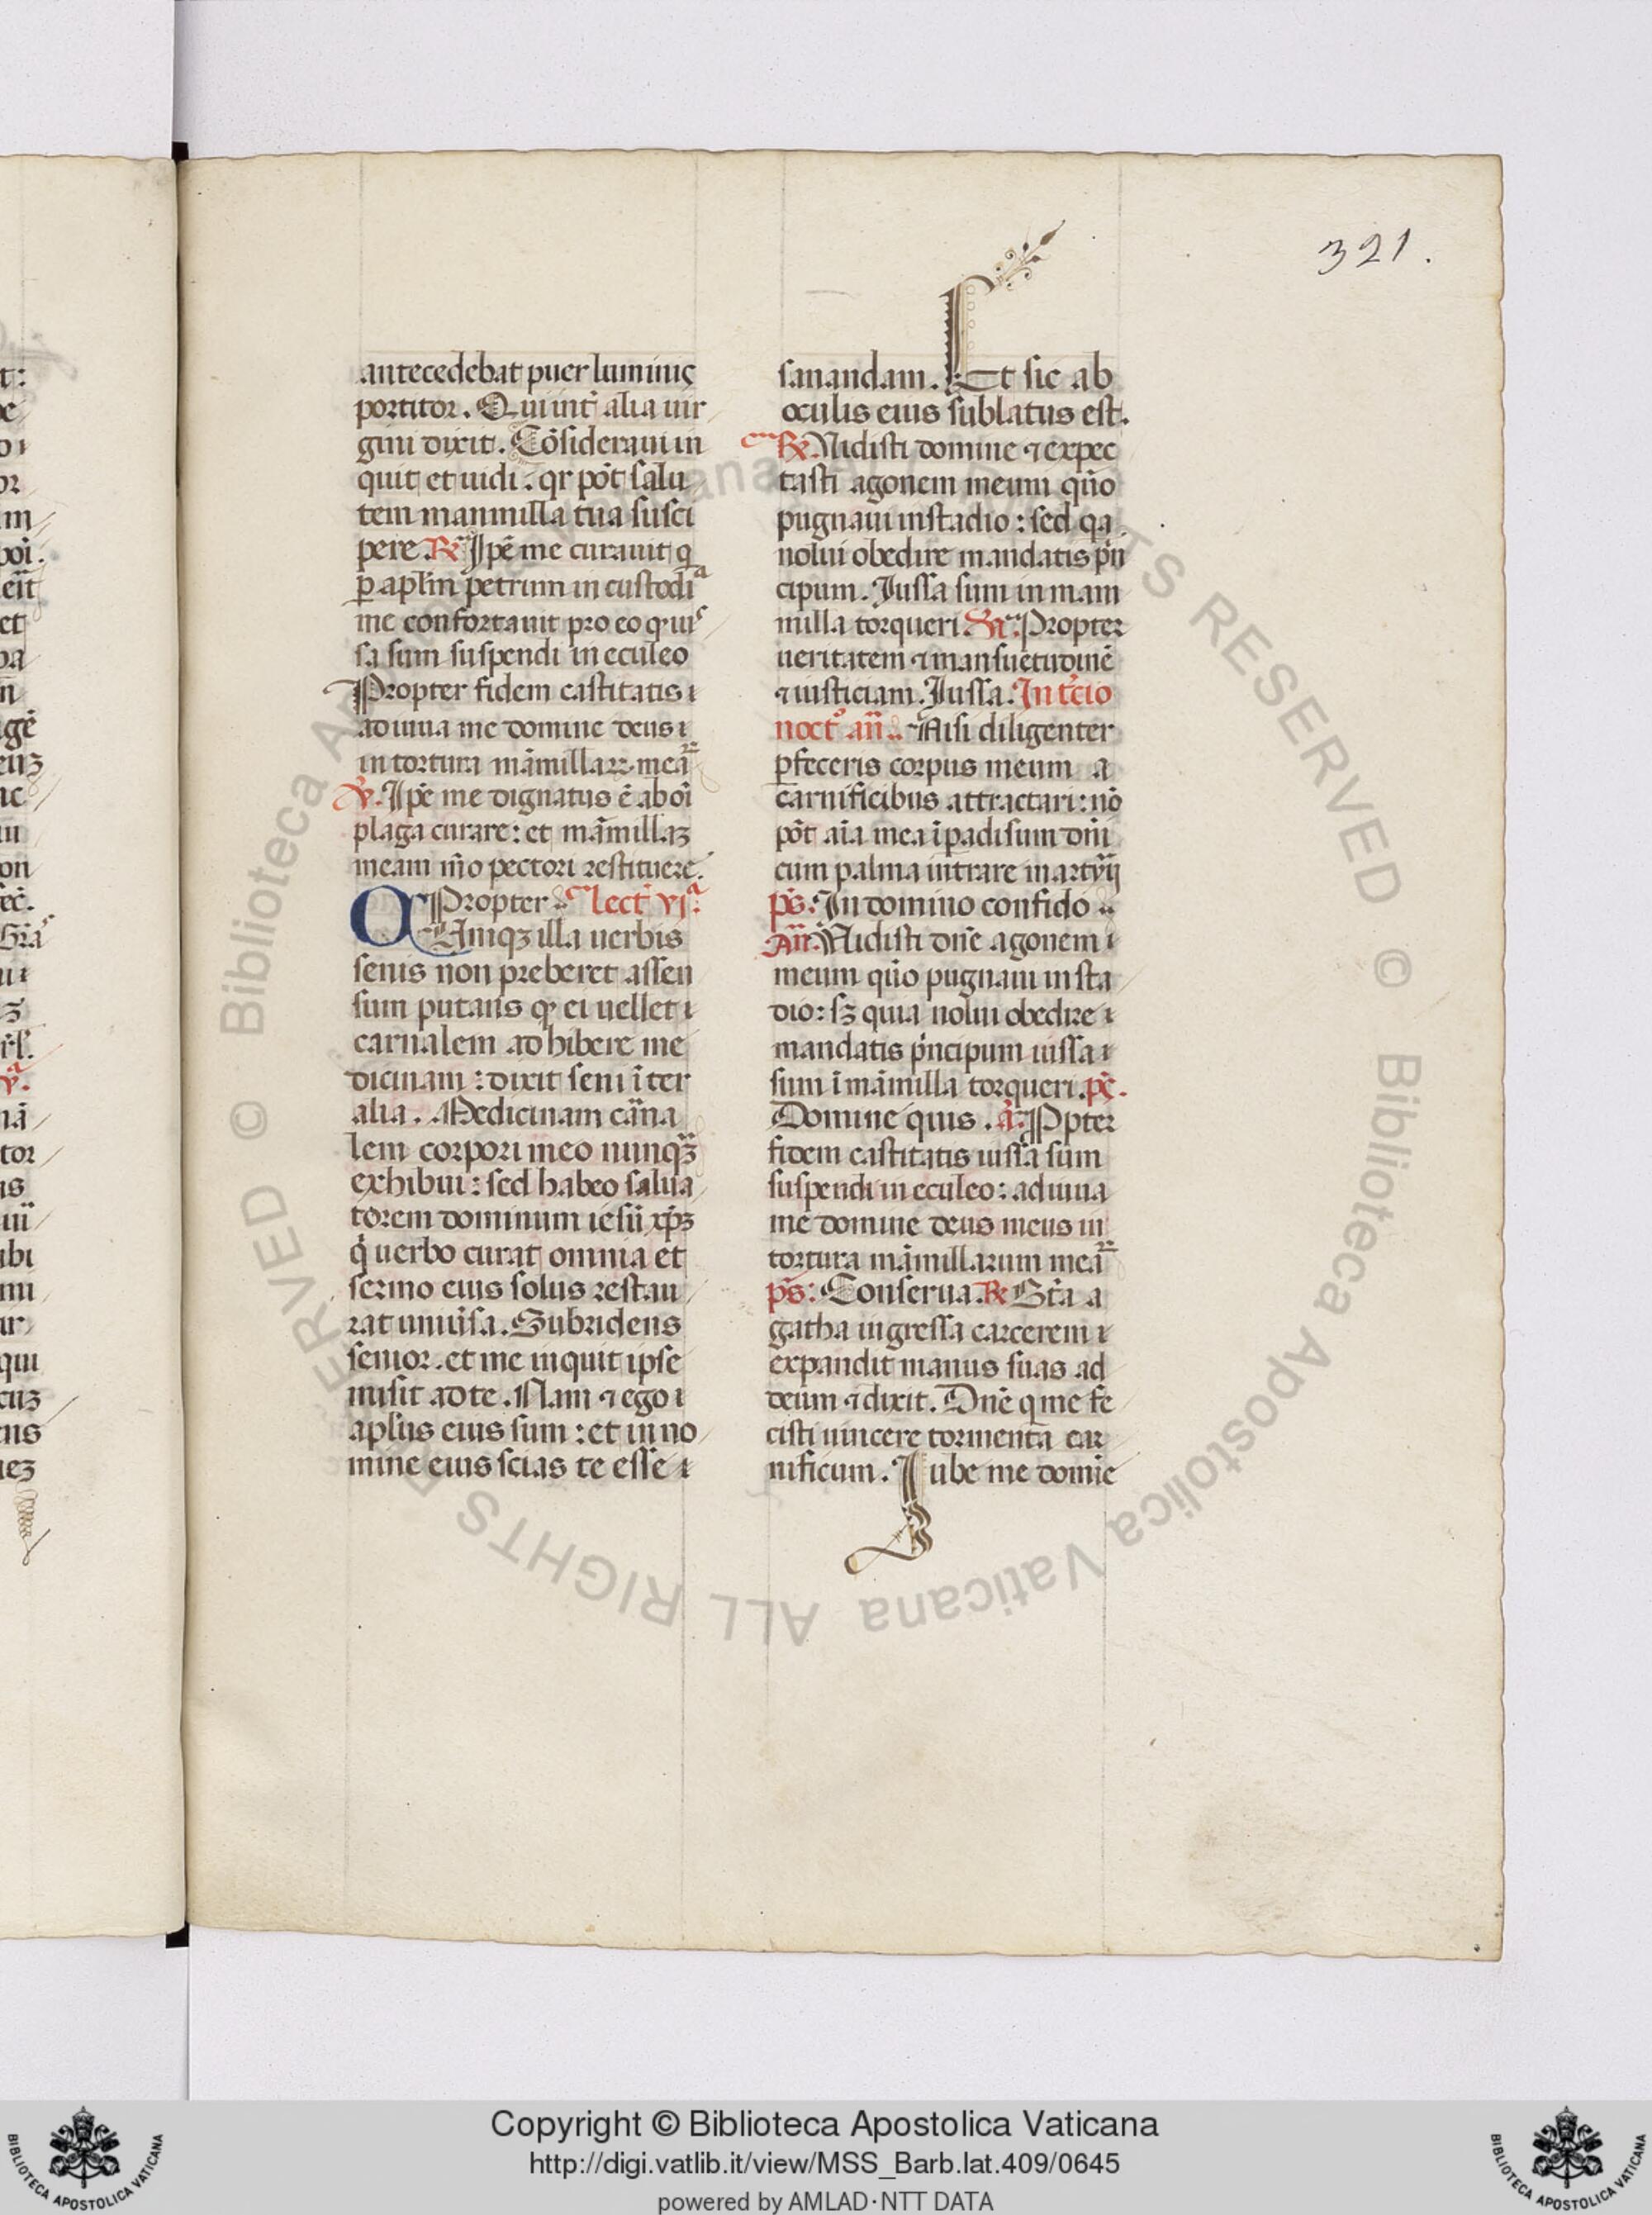 321.
antecedebat puer luminis
portitor. Qui int̄ alia uir
gini dixit. Cōsideraui in
quit et uidi. qr pōt salu
tem mammilla tua susci
pere. R̃ Ip̄e me curauit q
ꝑ aplm̄ petrum in custodiᵃ
me confortauit pro eo q iusˢ
sa sum suspendi in eculeo
Propter fidem castitatis
adiuua me domine deus
in tortura mām̄illaꝝ meaꝝ
℣. Ip̄e me dignatus ē ab oī
plaga curare: et mām̄illaꝫ
meam m̄o pectori restituere.
Propter lectͦ vjᵃ.
Q Cumqꝫ illa uerbis
senis non preberet assen
sum putans q ei uellet
carnalem adhibere me
dicinam: dixit seni īter
alia. Medicinam carna
lem corpori meo nunqꝫ
exhibui: sed habeo salua
torem dominum iesū xp̄ꝫ
q̇ uerbo curat omnia et
sermo eius solus restau
rat uniūsa. Subridens
senior. et me inquit ipse
misit ad te. Nam ⁊ ego
aplus eius sum: et in no
mine eius scias te esse
sanandam. Et sic ab
oculis eius sublatus est.
R̃. Uidisti domine ⁊ expec
tasti agonem meum quō
pugnaui in stadio: sed qa
nolui obedire mandatis pn̄
cipum. Iussa sum in mam
milla torqueri ℣. Propter
ueritatem ⁊ mansuetudinē
⁊ iusticiam. Iussa. In t̄cio
noctͦ an̄. Nisi diligenter
ꝑfeceris corpus meum a
carnificibus attractari: nō
pōt aīa mea ī padisum dn̄i
cum palma intrare martyrij
pṡ. In domino confido
An̄. Uidisti dn̄e agonem
meum quō pugnaui in sta
dio: sꝫ quia nolui obedire
mandatis pn̄cipum iussa
sum ī mām̄illa torqueri. pṡ.
Domine quis. ā. Ppter
fidem castitatis iussa sum
suspendi in eculeo: adiuua
me domine deus meus in
tortura mām̄illarum meaꝝ
pṡ: Conserua. R̃ Bt̄a a
gatha ingressa carcerem
expandit manus suas ad
deum ⁊ dixit. Dn̄e q me fe
cisti uincere tormenta car
nificum. Iube me domīe
Copyright © Biblioteca Apostolica Vaticana
http://digi.vatlib.it/view/MSS_Barb.lat.409/0645
powered by AMLAD·NTT DATA
BIBLIOTECA APOSTOLICA VATICANA
BIBLIOTECA APOSTOLICA VATICANA